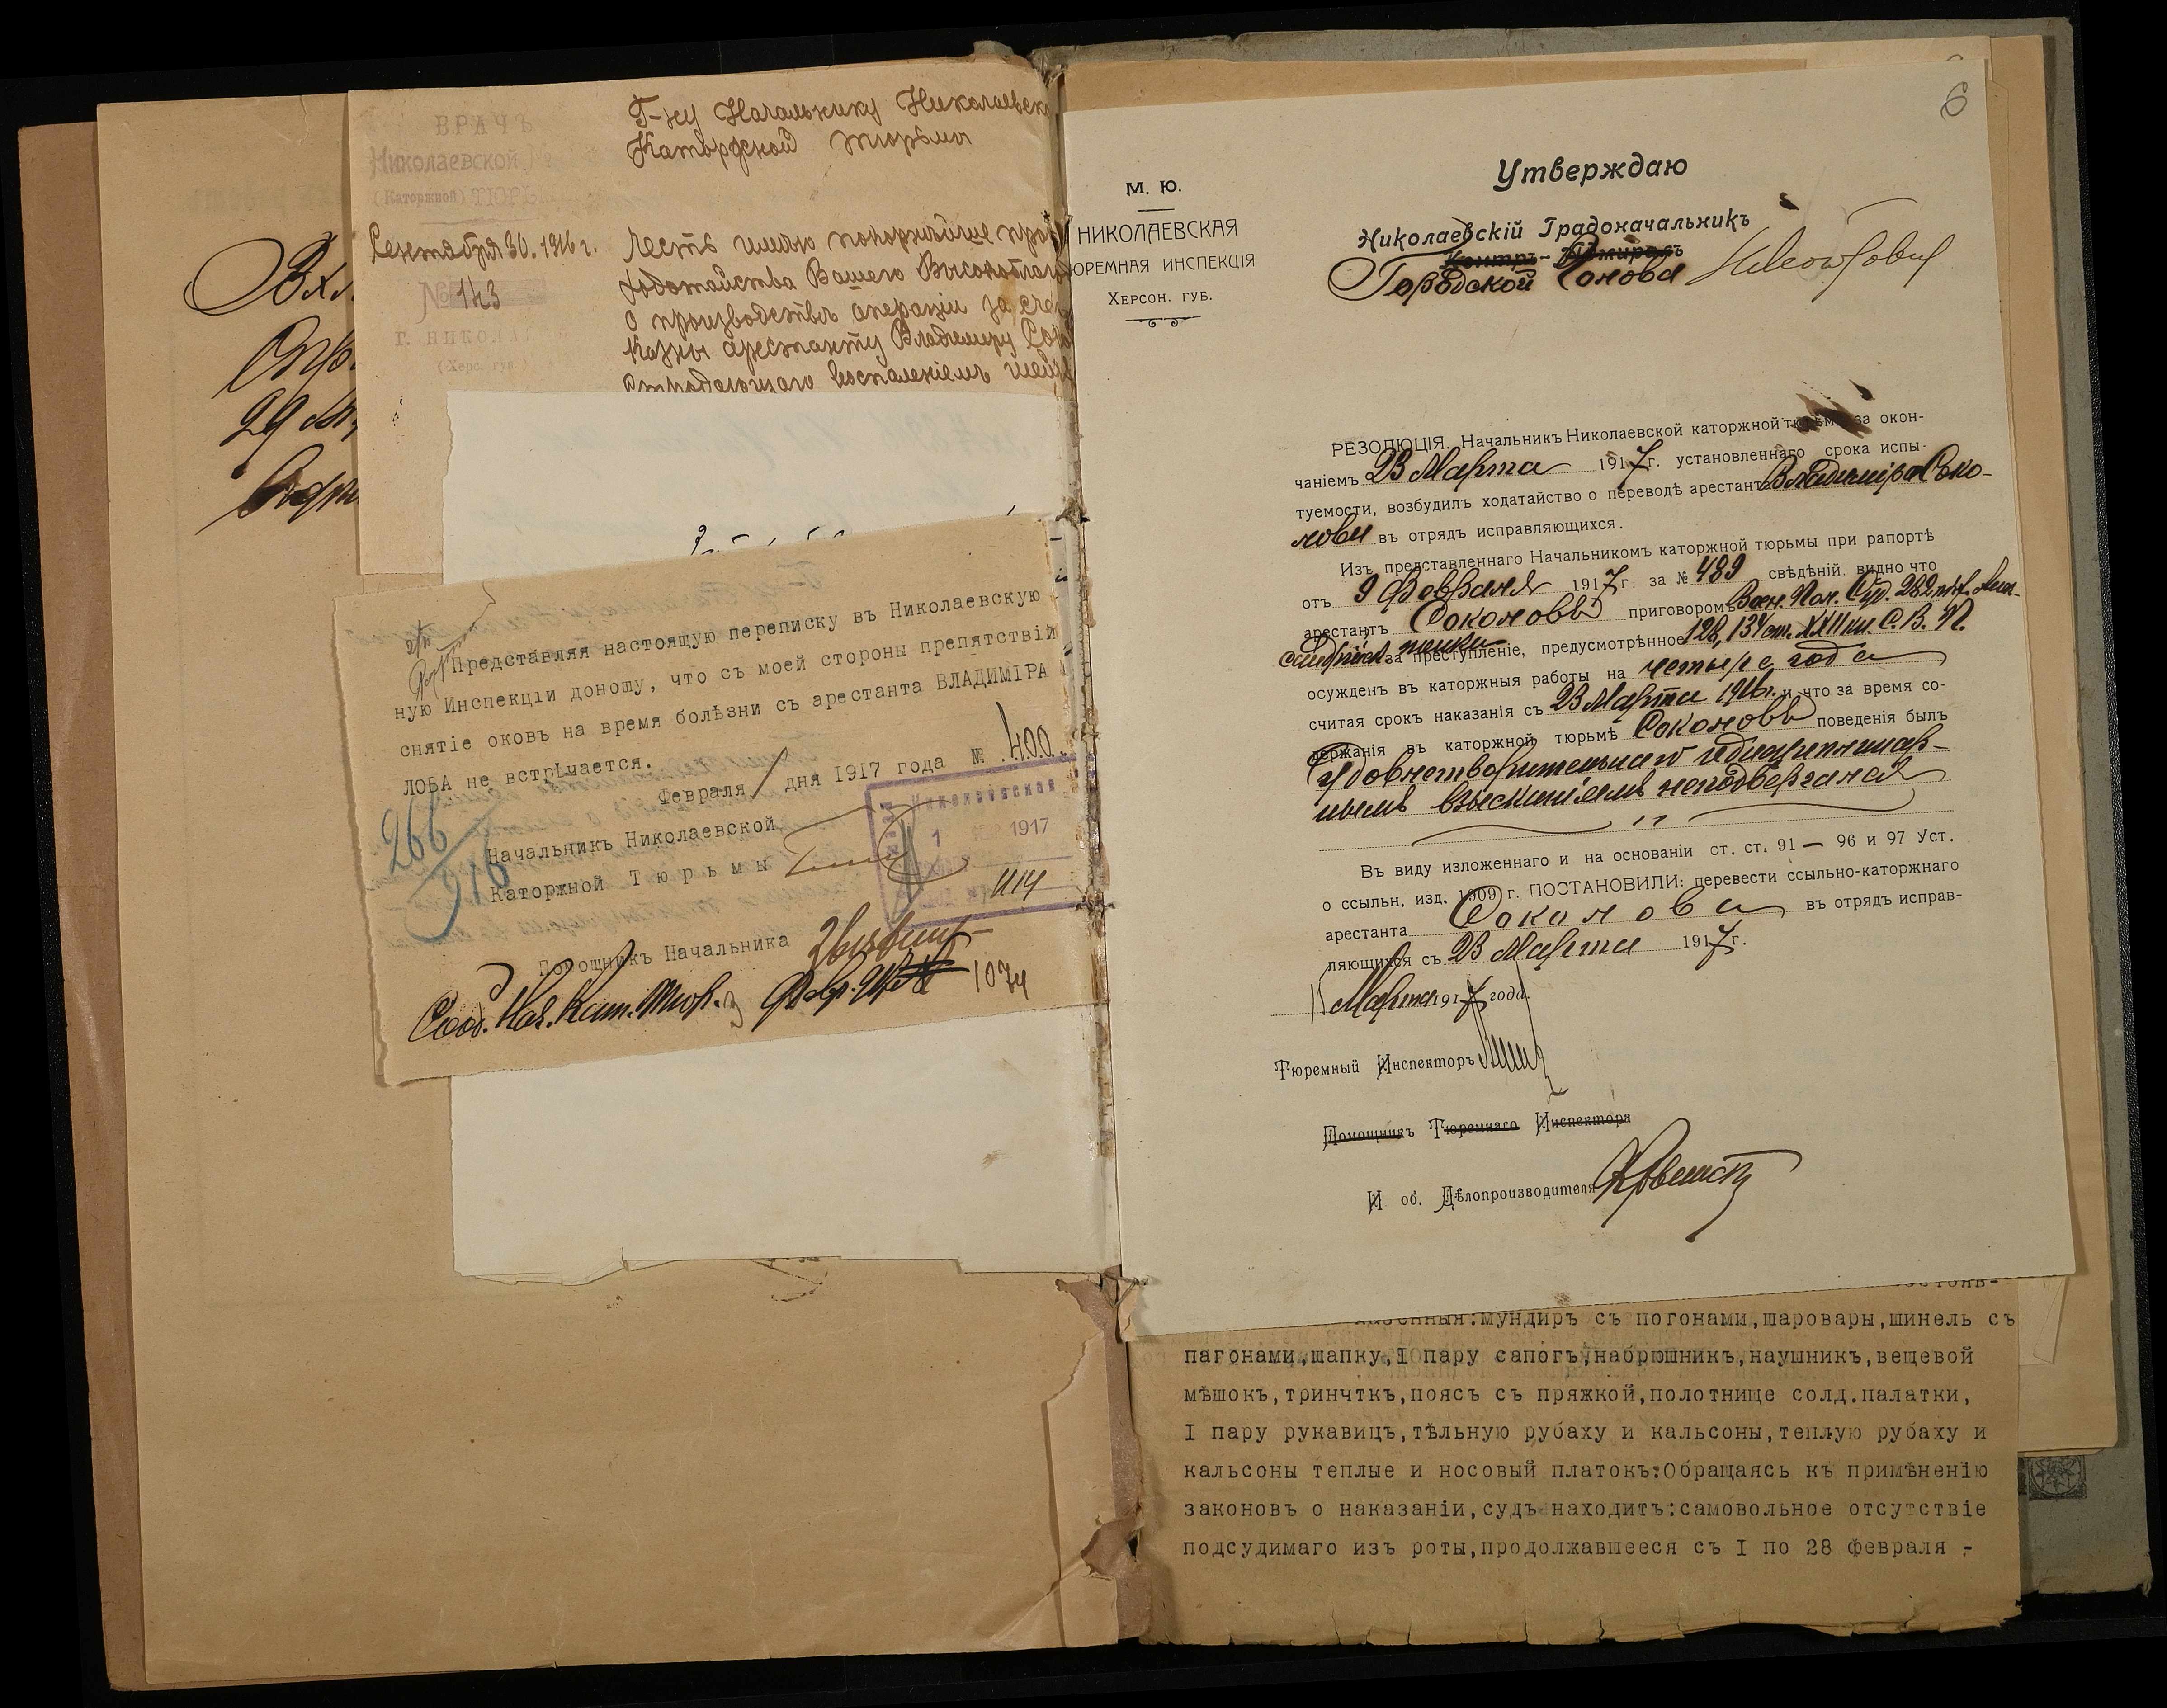 Вх.
29
ВРАЧЪ
Николаевской
(Каторжной) ТЮРЬ
Сентября 30. 1916 г.
№ 143
г. НИКОЛА
(Херс. губ.)
Г-ну Начальнику Николаевск
Каторжной тюрьмы
Честь имѣю покорнѣйше про
ходотайства Вашего Высокоблаго
о производствѣ операціи за сче
Казны арестанту Владимиру Соко
страдающаго воспаленіемъ шей
Представляя настоящую переписку въ Николаевскую
ную Инспекцію доношу, что съ моей стороны препятствій
снятіе оковъ на время болѣзни съ арестанта ВЛАДИМІРА
ЛОВА не встрѣчается.
Февраля 1 дня 1917 года № 400
266
916
Начальникъ Николаевской
Каторжной Тюрьмы
Николаевская
1 1917
1114
Помощникъ Начальника
Сооб. Нач. Кат. Тюр. 3 Февр. 1074
6
М. Ю.
НИКОЛАЕВСКАЯ
ЮРЕМНАЯ ИНСПЕКЦІЯ
ХЕРСОН. ГУБ.
Утверждаю
Николаевскій Градоначальникъ
Контръ-Адмиралъ
Городской Голова
РЕЗОЛЮЦІЯ. Начальникъ Николаевской каторжной тюрьмы за окон-
чаніемъ 23 Марта 1917 г. установленнаго срока испы-
туемости, возбудилъ ходатайство о переводѣ арестанта Владиміра Соко-
лова въ отрядъ исправляющихся.
Изъ представленнаго Начальникомъ каторжной тюрьмы при рапортѣ
отъ 9 Февраля 1917 г. за № 489 свѣдѣній видно что
арестантъ Соколовъ приговоромъ Воен. Пол. Суд. 282 пѣх. Алек-
сандрійск. полка за преступленіе, предусмотрѣнное 128, 134 ст. XXII кн. С. В. П.
осужденъ въ каторжныя работы на четыре года
считая срокъ наказанія съ 23 Марта 1916 г. и что за время со-
держанія въ каторжной тюрьмѣ Соколовъ поведенія былъ
удовлетворительнаго и дисциплинар-
нымъ взысканіямъ неподвергался
Въ виду изложеннаго и на основаніи ст. ст. 91 — 96 и 97 Уст.
о ссыльн, изд. 1909 г. ПОСТАНОВИЛИ: перевести ссыльно-каторжнаго
арестанта Соколова въ отрядъ исправ-
ляющихся съ 23 Марта 1917 г.
15 Марта 1917 года.
Тюремный Инспекторъ
Помощникъ Тюремнаго Инспектора
И об. Дѣлопроизводителя
мундиръ съ погонами,шаровары,шинель съ
пагонами,шапку,I пару сапогъ,набрюшникъ,наушникъ,вещевой
мѣшокъ,тринчткъ,поясъ съ пряжкой,полотнище солд.палатки,
I пару рукавицъ,тѣльную рубаху и кальсоны,теплую рубаху и
кальсоны теплые и носовый платокъ:Обращаясь къ примѣненію
законовъ о наказаніи,судъ находитъ:самовольное отсутствіе
подсудимаго изъ роты,продолжавшееся съ I по 28 февраля -